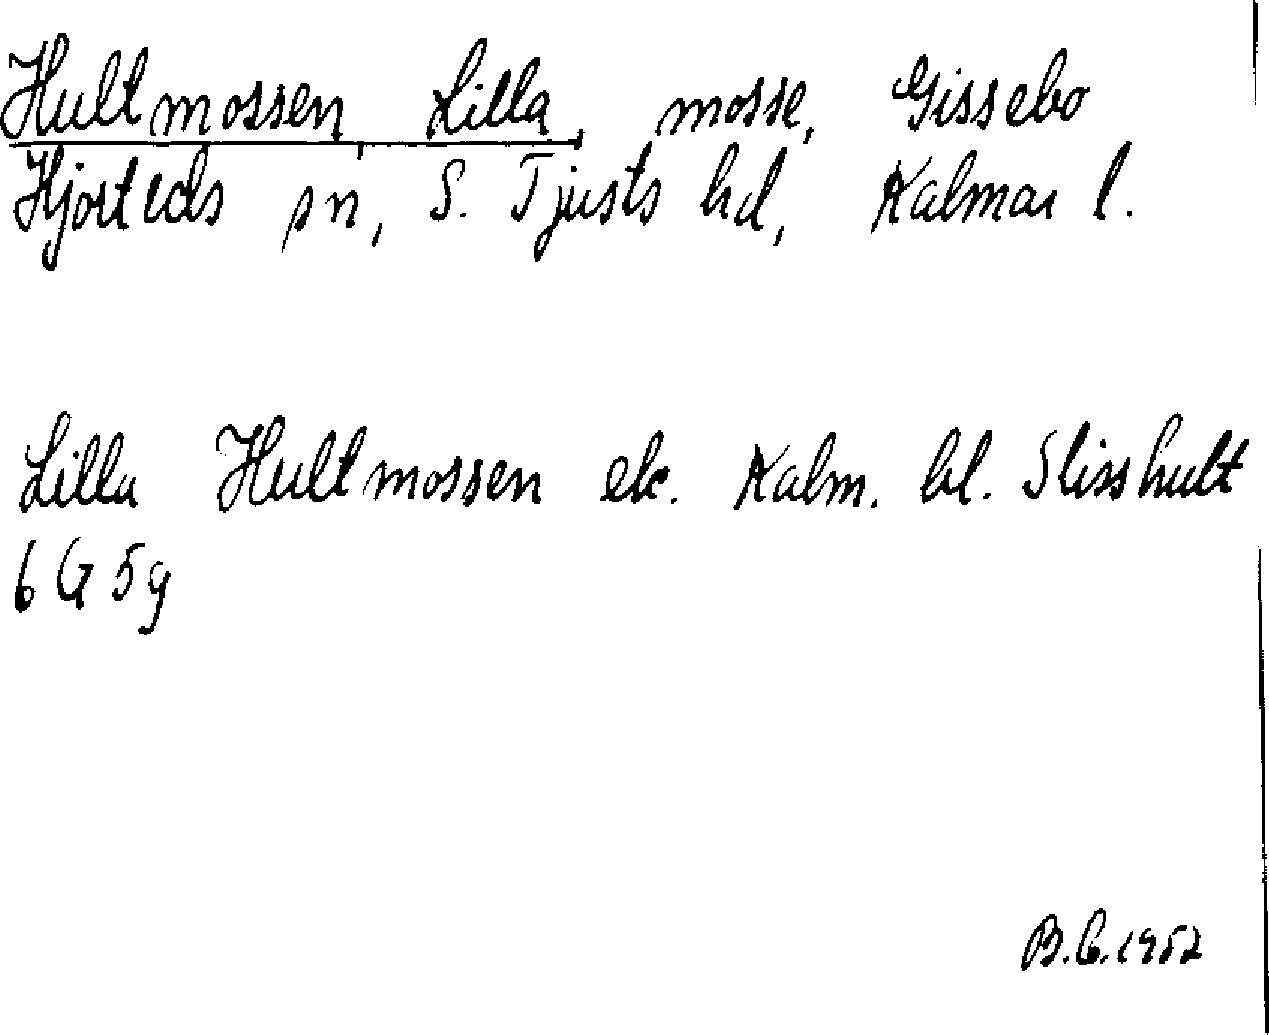 Hultmossen, Lilla, mosse, Gissebo
Hjorteds sn, S. Tjusts hd, Kalmar l.
Lilla Hultmossen ek. Kalm. bl. Slisshult
6 G 5g
B.C. 1952